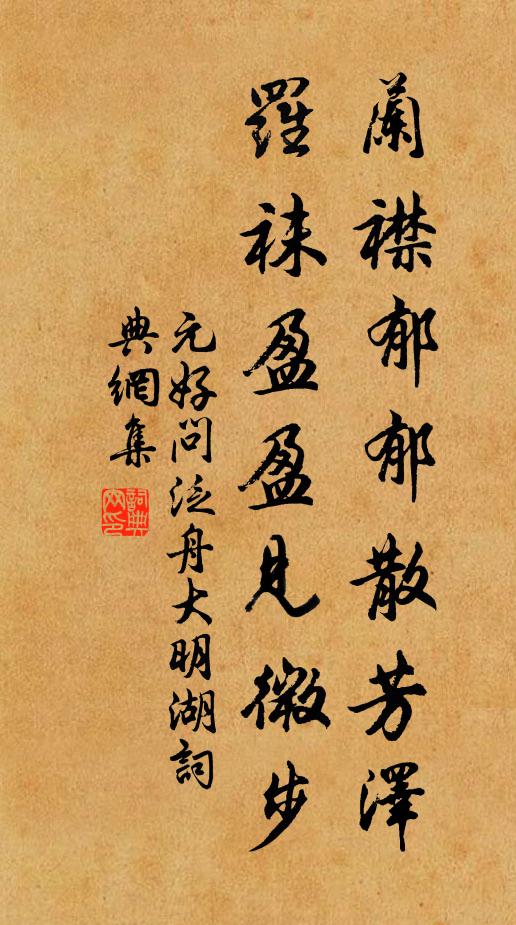 蘭襟郁郁散芳澤
羅袜盈盈見微步
元好問泛舟大明湖詞
典網集
詞典
网印